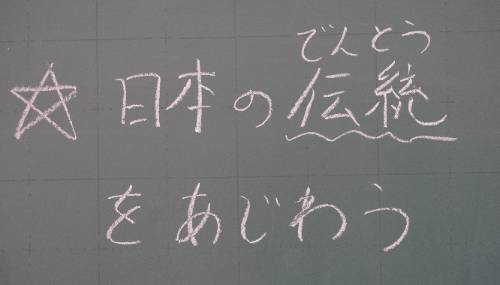 でんとう
☆ 日本の伝統
をあじわう